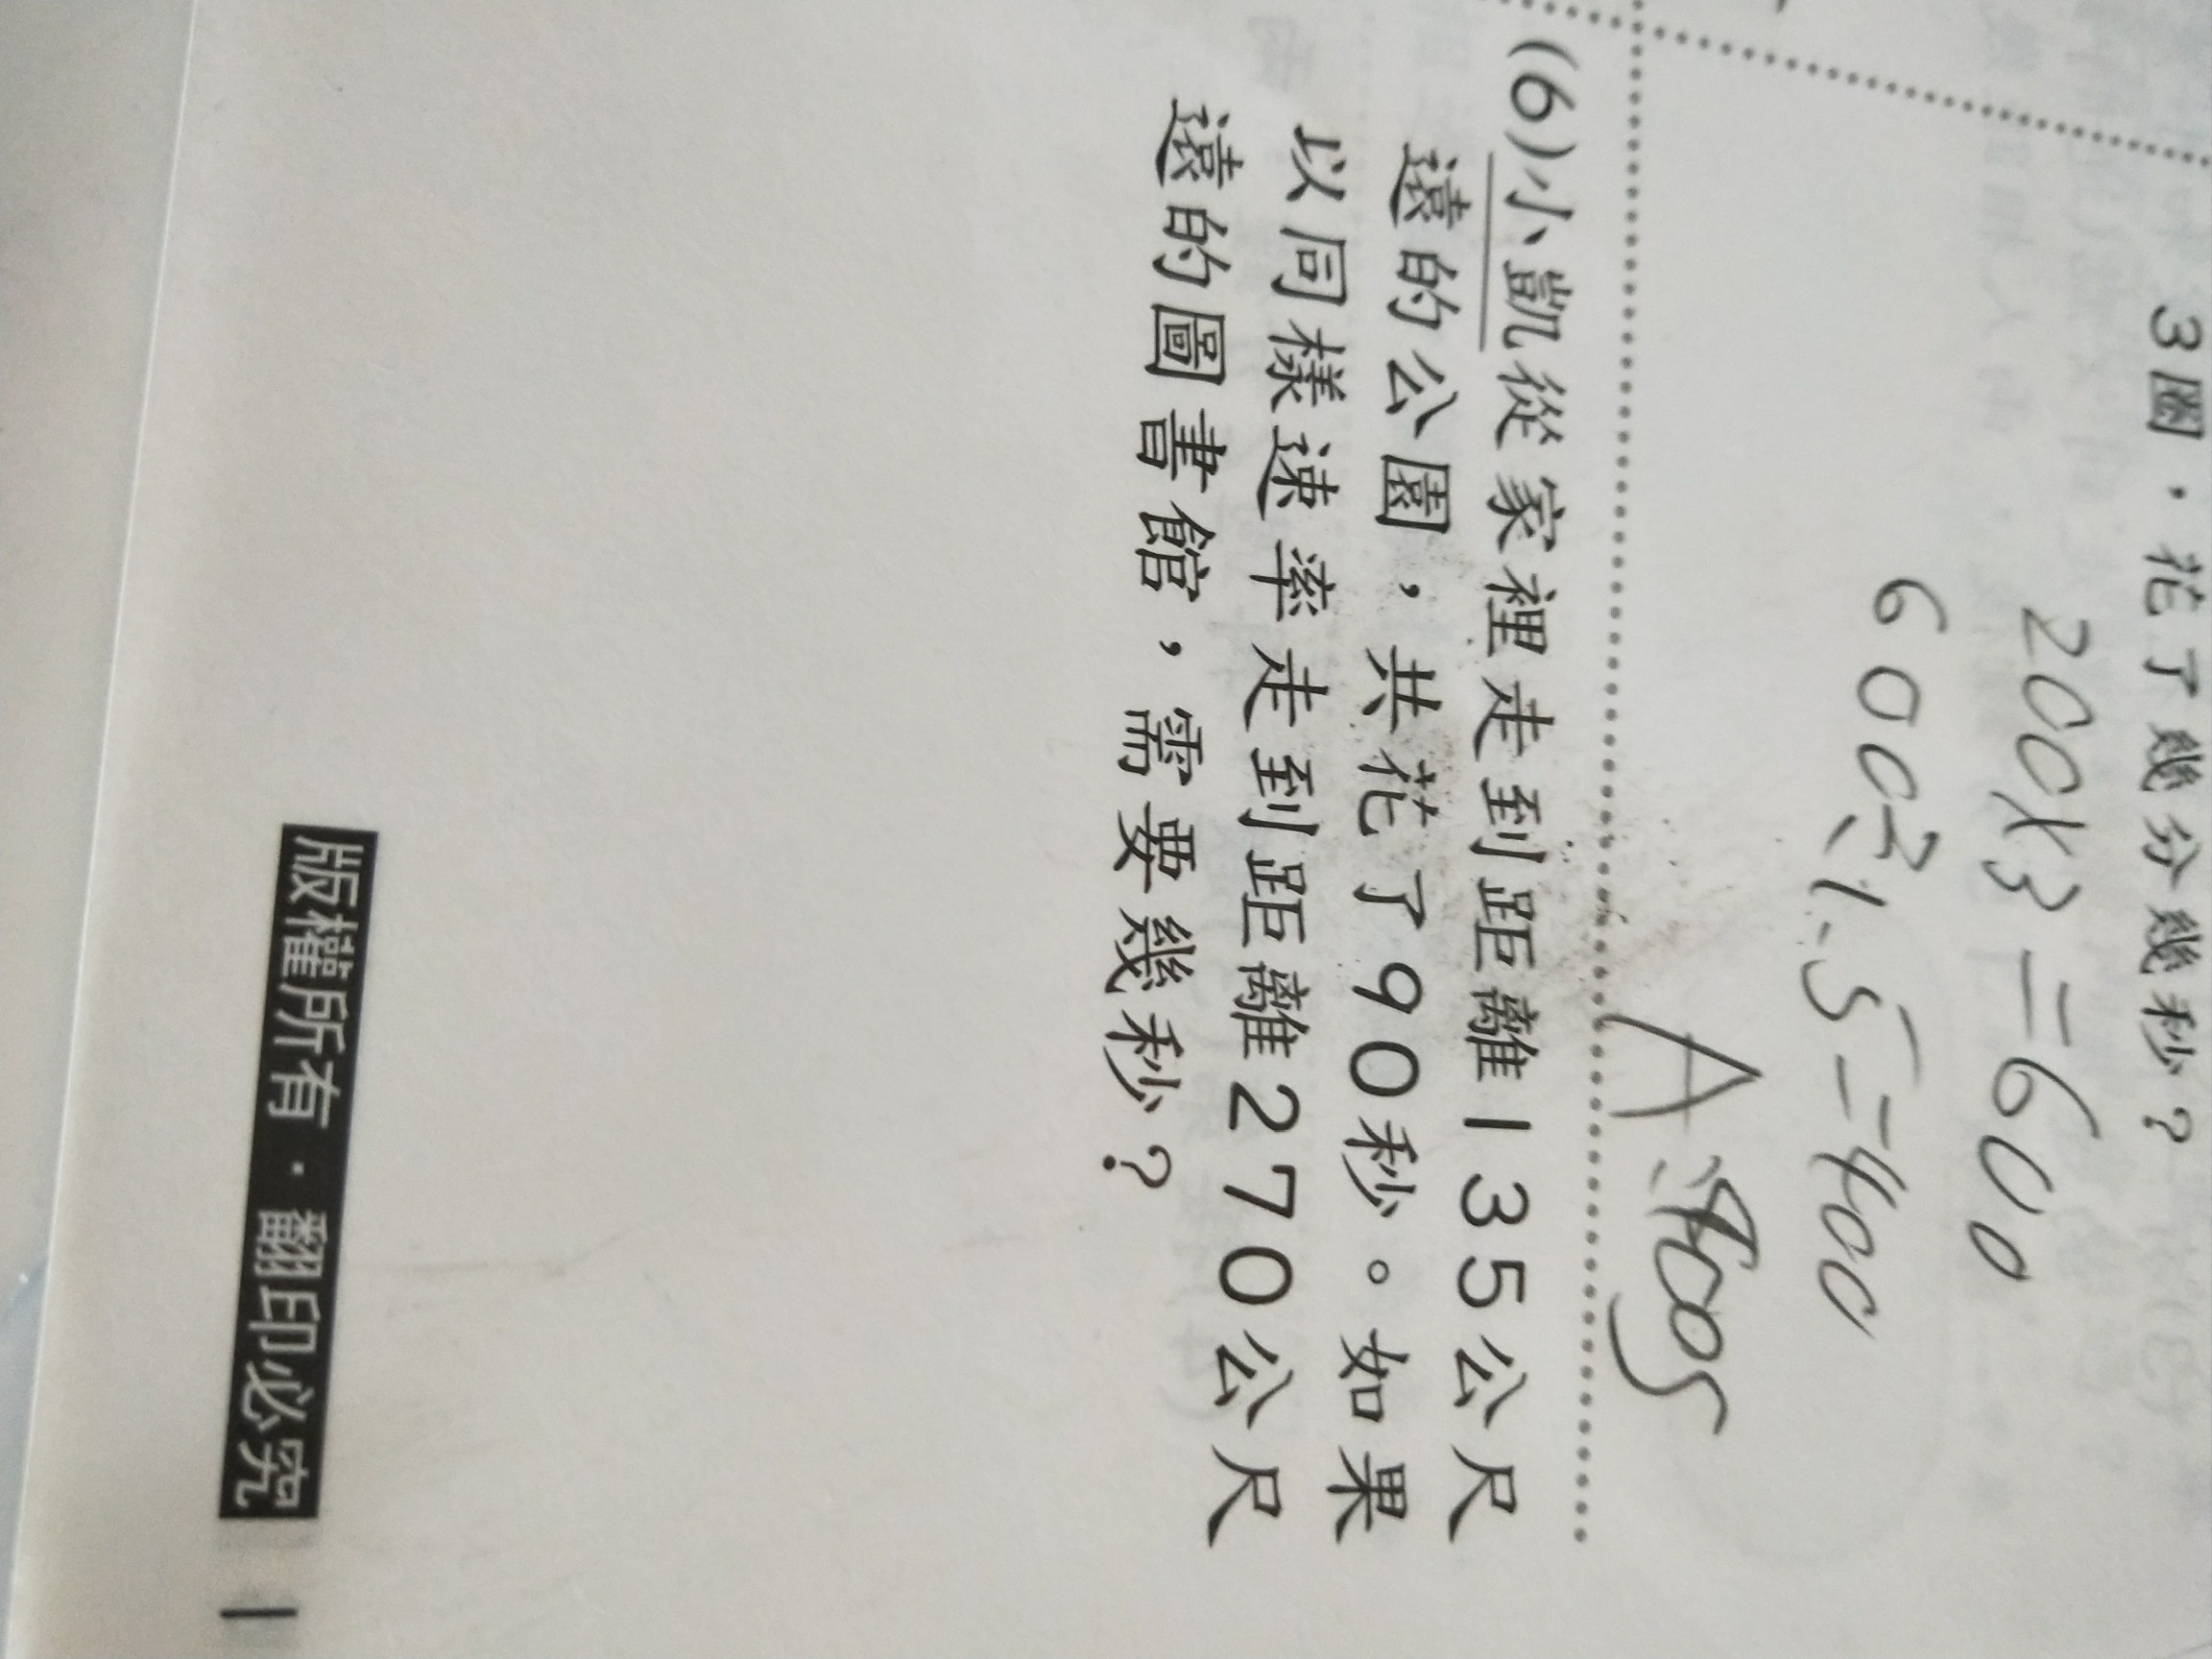 3圈，花了幾分幾秒？
200×3=600
600÷1.5=400
A:400s
(6)小凱從家裡走到距離135公尺
遠的公園，共花了90秒。如果
以同樣速率走到距離270公尺
遠的圖書館，需要幾秒？
版權所有·翻印必究
1